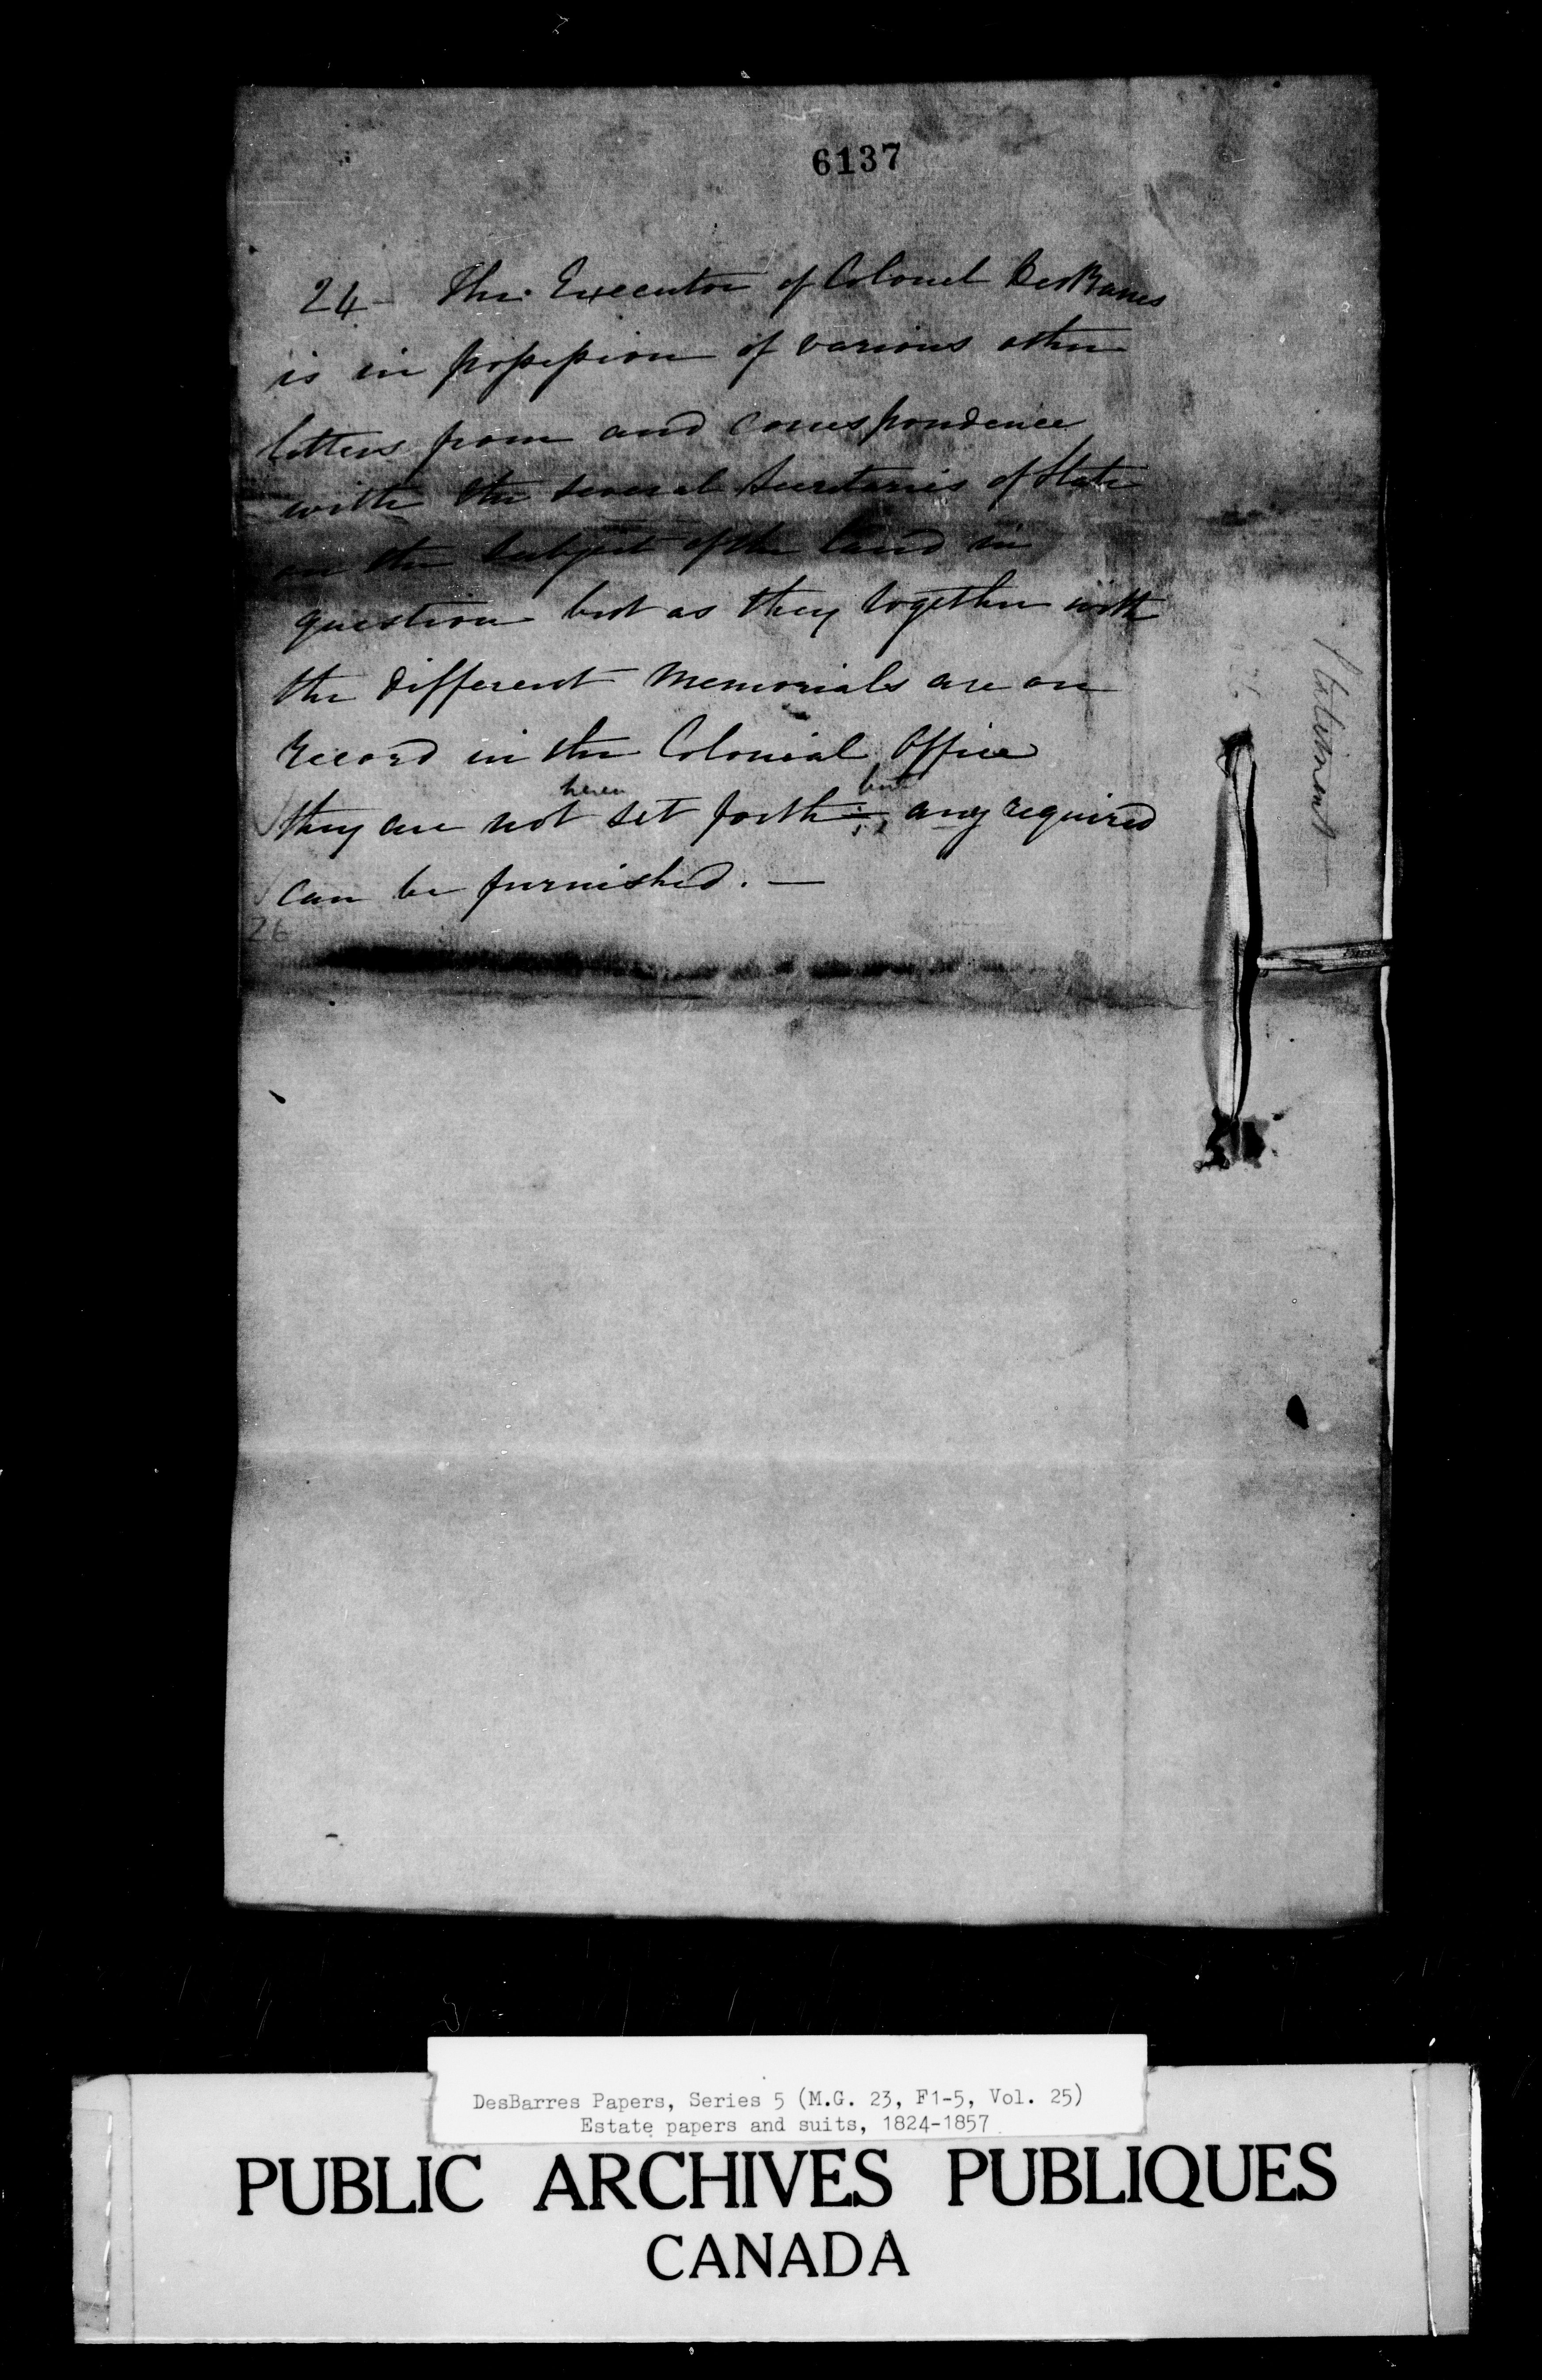 6137
24 - The Executor of Colonel DesBarres
is in possession of various other
letters from and correspondence
with the several Secretaries of State
on the subject of the land in
question but as they together with
the different Memorials are on
record in the Colonial Office
herein but
they are not set forth any required
can be furnished. —
26
Statement
DesBarres Papers, Series 5 (M.G. 23, F1-5, Vol. 25)
Estate papers and suits, 1824-1857
PUBLIC ARCHIVES PUBLIQUES
CANADA